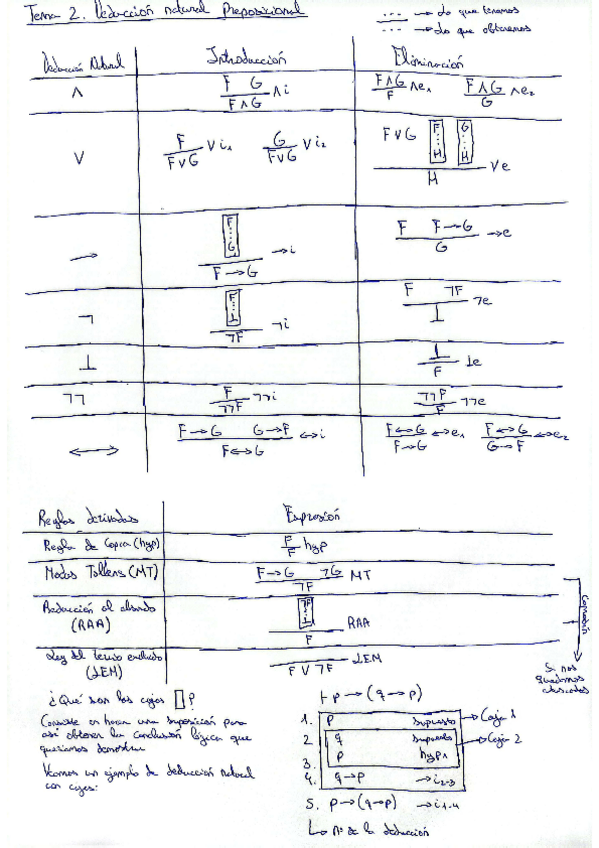 Tema 2. Deducción natural proposicional
--- → Lo que tenemos
--- → Lo que obtenemos
Deducción Natural Introducción Eliminación
∧ F G / F∧G ∧i F∧G / F ∧e₁ F∧G / G ∧e₂
∨ F / F∨G ∨i₁ G / F∨G ∨i₂ F∨G [F ⋮ H] [G ⋮ H] / H ∨e
→ [F ⋮ G] / F→G →i F F→G / G →e
¬ [F ⋮ ⊥] / ¬F ¬i F ¬F / ⊥ ¬e
⊥ ⊥ / F ⊥e
¬¬ F / ¬¬F ¬¬i ¬¬F / F ¬¬e
↔ F→G G→F / F↔G ↔i F↔G / F→G ↔e₁ F↔G / G→F ↔e₂
Reglas derivadas Expresión
Regla de Copia (hyp) F / F hyp
Modus Tollens (MT) F→G ¬G / ¬F MT
Reducción al absurdo (RAA) [¬F ⋮ ⊥] / F RAA
Ley del tercio excluido (LEM) F∨¬F LEM
Si nos quedamos atascados
¿Qué son las cajas ▯?
Consiste en hacer una suposición para
así obtener la conclusión lógica que
queríamos demostrar
Veamos un ejemplo de deducción natural
con cajas:
⊢ p→(q→p)
1. p supuesto → Caja 1
2 q supuesto → Caja 2
3. p hyp 1
4. q→p →i 2-3
5. p→(q→p) →i 1-4
↳ nº de la deducción